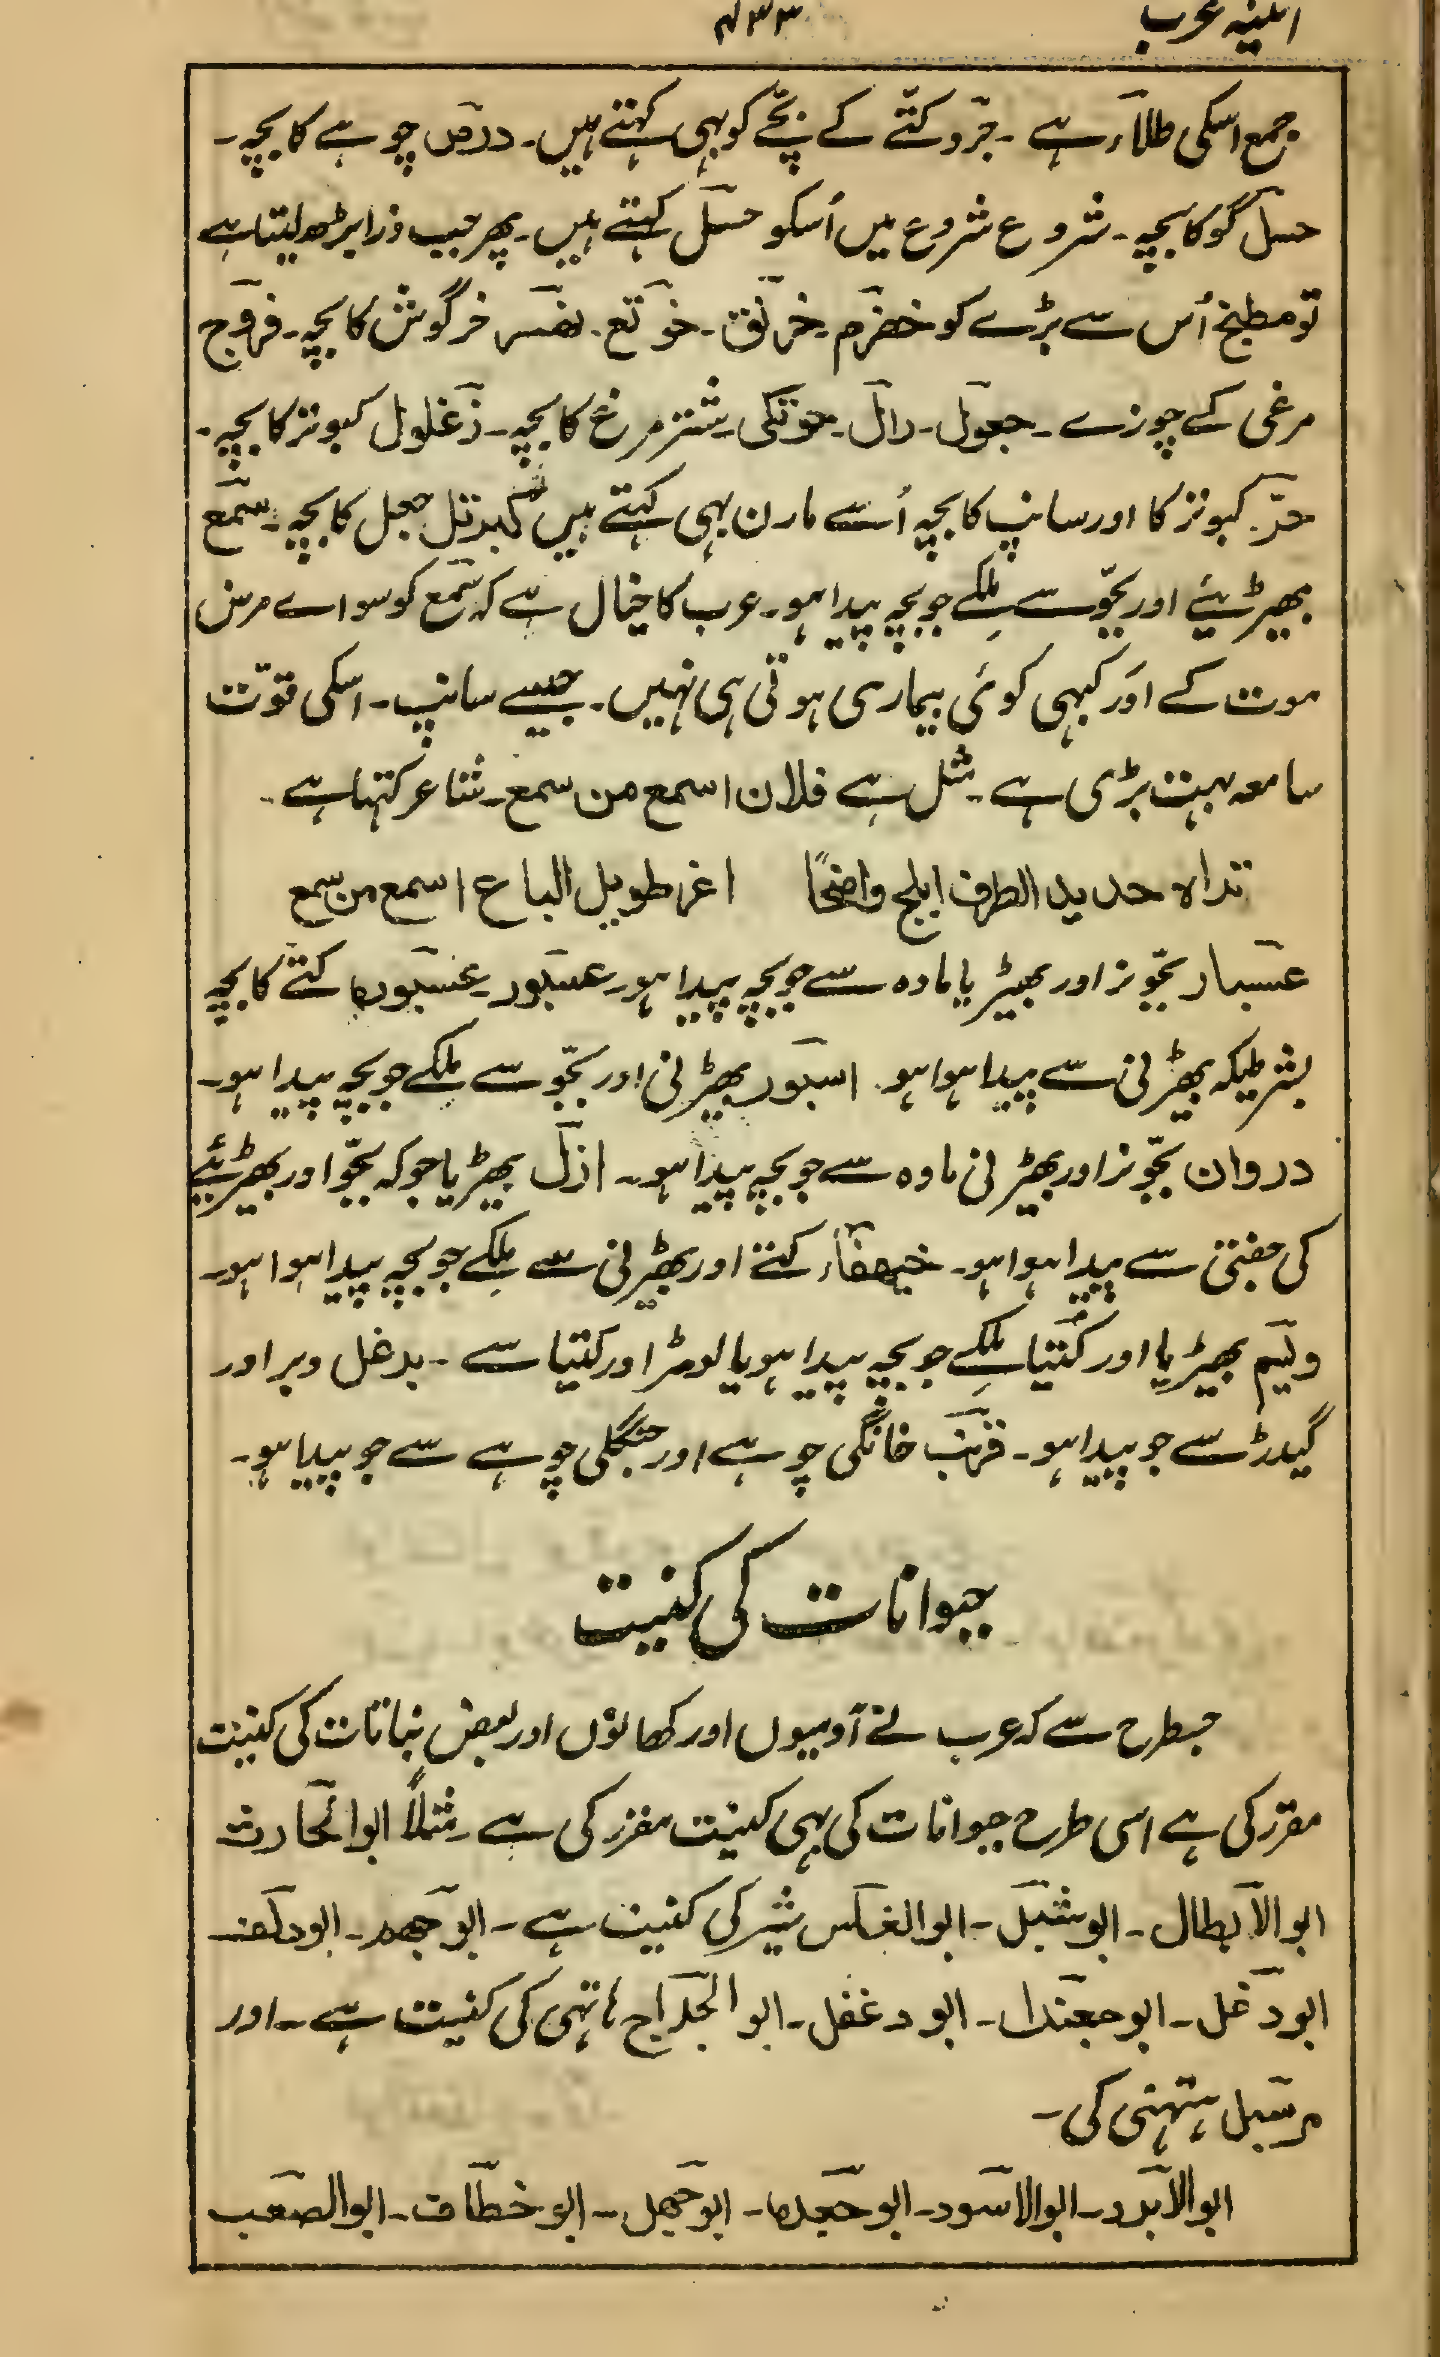 ائینہ عرب ۴۳۳
جمع اسکی طلاَء ہے ۔ جَرو کتّے کے بچّے کو بہی کہتے ہیں۔ درص چوہے کا بچہ۔
حسل گوکا بچہ۔ شروع شروع میں اُسکو حسل کہتے ہیں۔ پھر جب ذرا بڑھ لیتا ہے
تو مطبخ اُس سے بڑے کو خضرم۔ خرنق۔ خوتع۔ خرگوش کا بچہ۔ فروج
مرغی کے چوزے۔ جعول۔ رال۔ حوتکی شتر مرغ کا بچہ۔ زغلول کبوتر کا بچہ۔
حرّ۔ کبوتر کا اور سانپ کا بچہ اُسے مارن بہی کہتے ہیں کا بچہ۔ سمع
بھیڑیئے اور بجّو سے ملکے جو بچہ پیدا ہو۔ عرب کا خیال ہے کہ سمع کو سواے مرض
موت کے اور کبہی کوئی بیماری ہوتی ہی نہیں۔ جیسے سانپ۔ اسکی قوّت
سامعہ بہت بڑی ہے۔ مثل ہے فلان اسمع من سمع۔ شاعر کہتا ہے۔
تراہ حدید الطرف ابلج واضحًا اغر طویل الباع اسمع من سمع
عسبار بجّو نر اور بھیڑیا مادہ سے جو بچہ پیدا ہو۔ عسبور۔ عسبورہ کتّے کا بچہ
بشرطیکہ بھیڑنی سے پیدا ہوا ہو۔ اسبور بھیڑنی اور بجّو سے ملکے جو بچہ پیدا ہو۔
دروان بجّو نر اور بھیڑنی مادہ سے جو بچہ پیدا ہو۔ ازل بھیڑیا جو کہ بجّو اور بھیڑیئے
کی جفتی سے پیدا ہوا ہو۔ خیھفاَء کتے اور بھیڑنی سے ملکے جو بچہ پیدا ہوا ہو۔
ویسم بھیڑیا اور کُتیا ملکے جو بچہ پیدا ہو یا لومڑ اور کتیا سے ۔ بدغل وبر اور
گیدڑ سے جو پیدا ہو۔ قرنب خانگی چوہے اور جنگلی چوہے سے جو پیدا ہو۔
حیوانات کی کنیت
جسطرح سے کہ عرب نے آدمیوں اور کھانوں اور بعض نباتات کی کنیت
مقرر کی ہے اسی طرح حیوانات کی بہی کنیت مقرر کی ہے۔ مثلاً ابوالحارث
ابوالابطال۔ ابوشبل۔ ابوالعکس شیر کی کنیت ہے۔ ابوجھم۔
ابودغل۔ ابوجعندا۔ ابودغفل۔ ابوالجراح ہاتہی کی کنیت ہے۔ اور
مرسبل ہتہنی کی۔
ابوالابرد۔ ابوالاسود۔ ابوجعدہ۔ ابوجھل۔ ابوخطاف۔ ابوالصعب